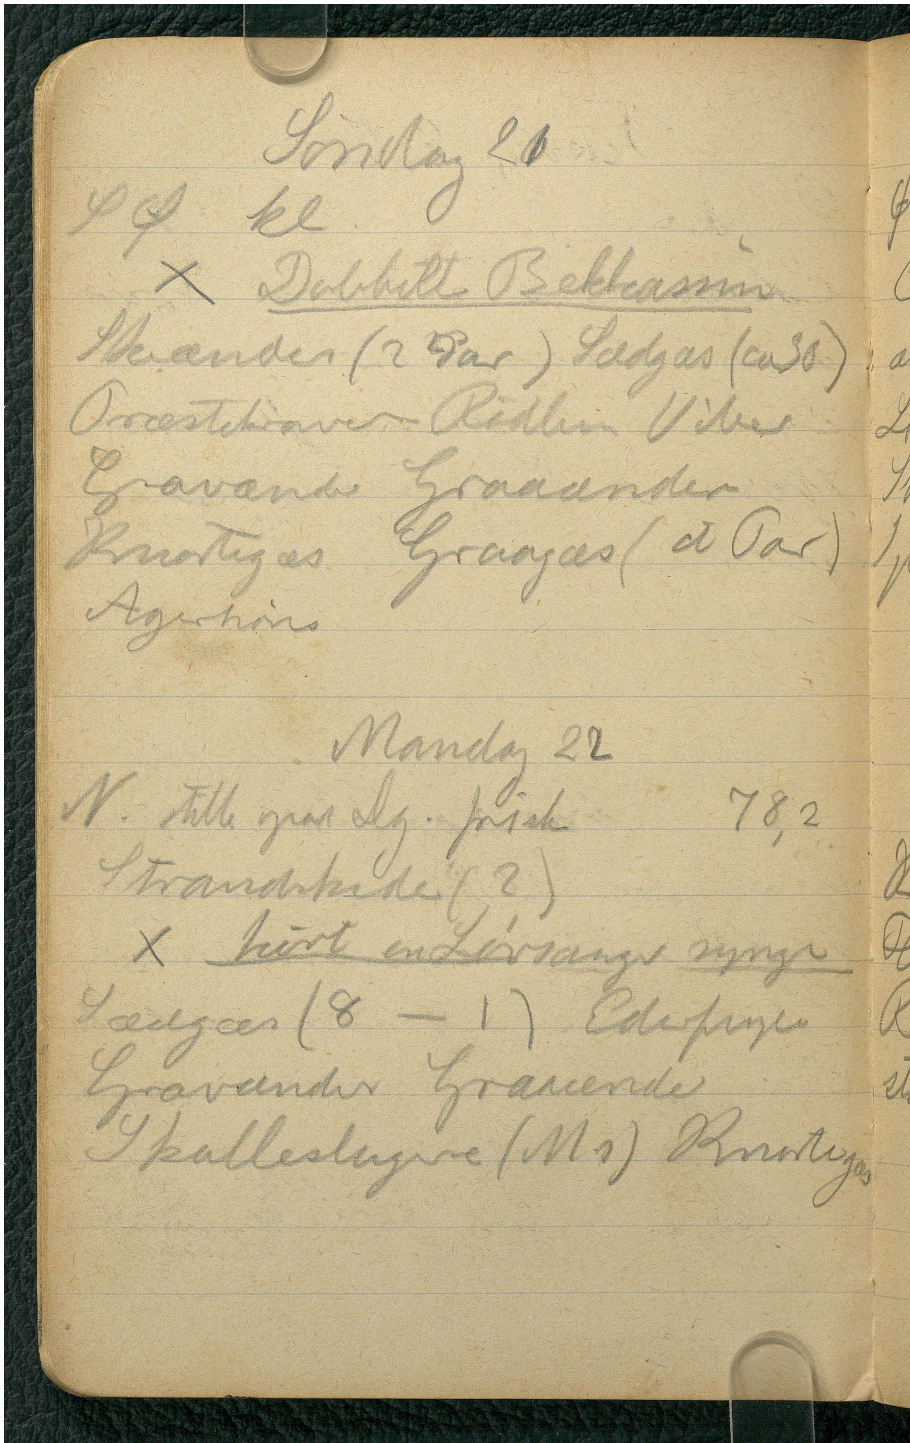 Søndag 21
kl
× Dobbelt Bekkassin
Skeænder (2 Par) Sædgæs (ca 30)
Præstekraver Rødben Viber
Gravænder Graaænder
Knortegæs Graagæs (et Par)
Agerhøns
Mandag 22
N. stille frisk 78,2
Strandskade (2)
× hørt en Løvsanger synge
Sædgæs (8 — 1) Ederfugle
Gravænder Graaænder
Skalleslugere (M s) Knortegæs